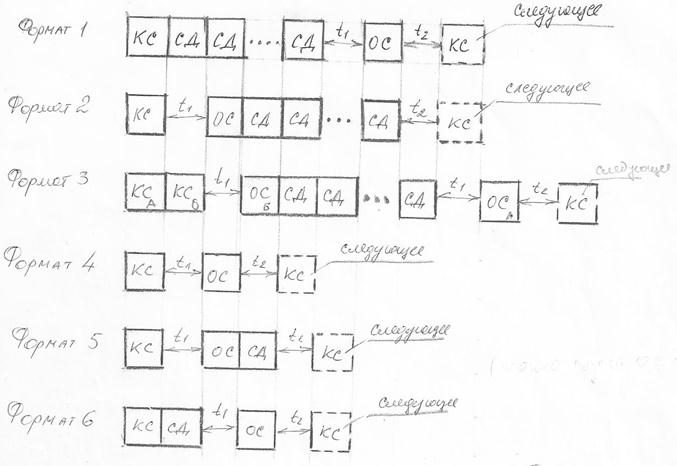 Формат 1 КС СД СД .... СД t₁ ОС t₂ КС следующее
Формат 2 КС t₁ ОС СД СД ... СД t₂ КС следующее
Формат 3 КС_А КС_Б t₁ ОС_Б СД СД ... СД t₁ ОС_А t₂ КС следующее
Формат 4 КС t₁ ОС t₂ КС следующее
Формат 5 КС t₁ ОС СД t₂ КС следующее
Формат 6 КС СД t₁ ОС t₂ КС следующее